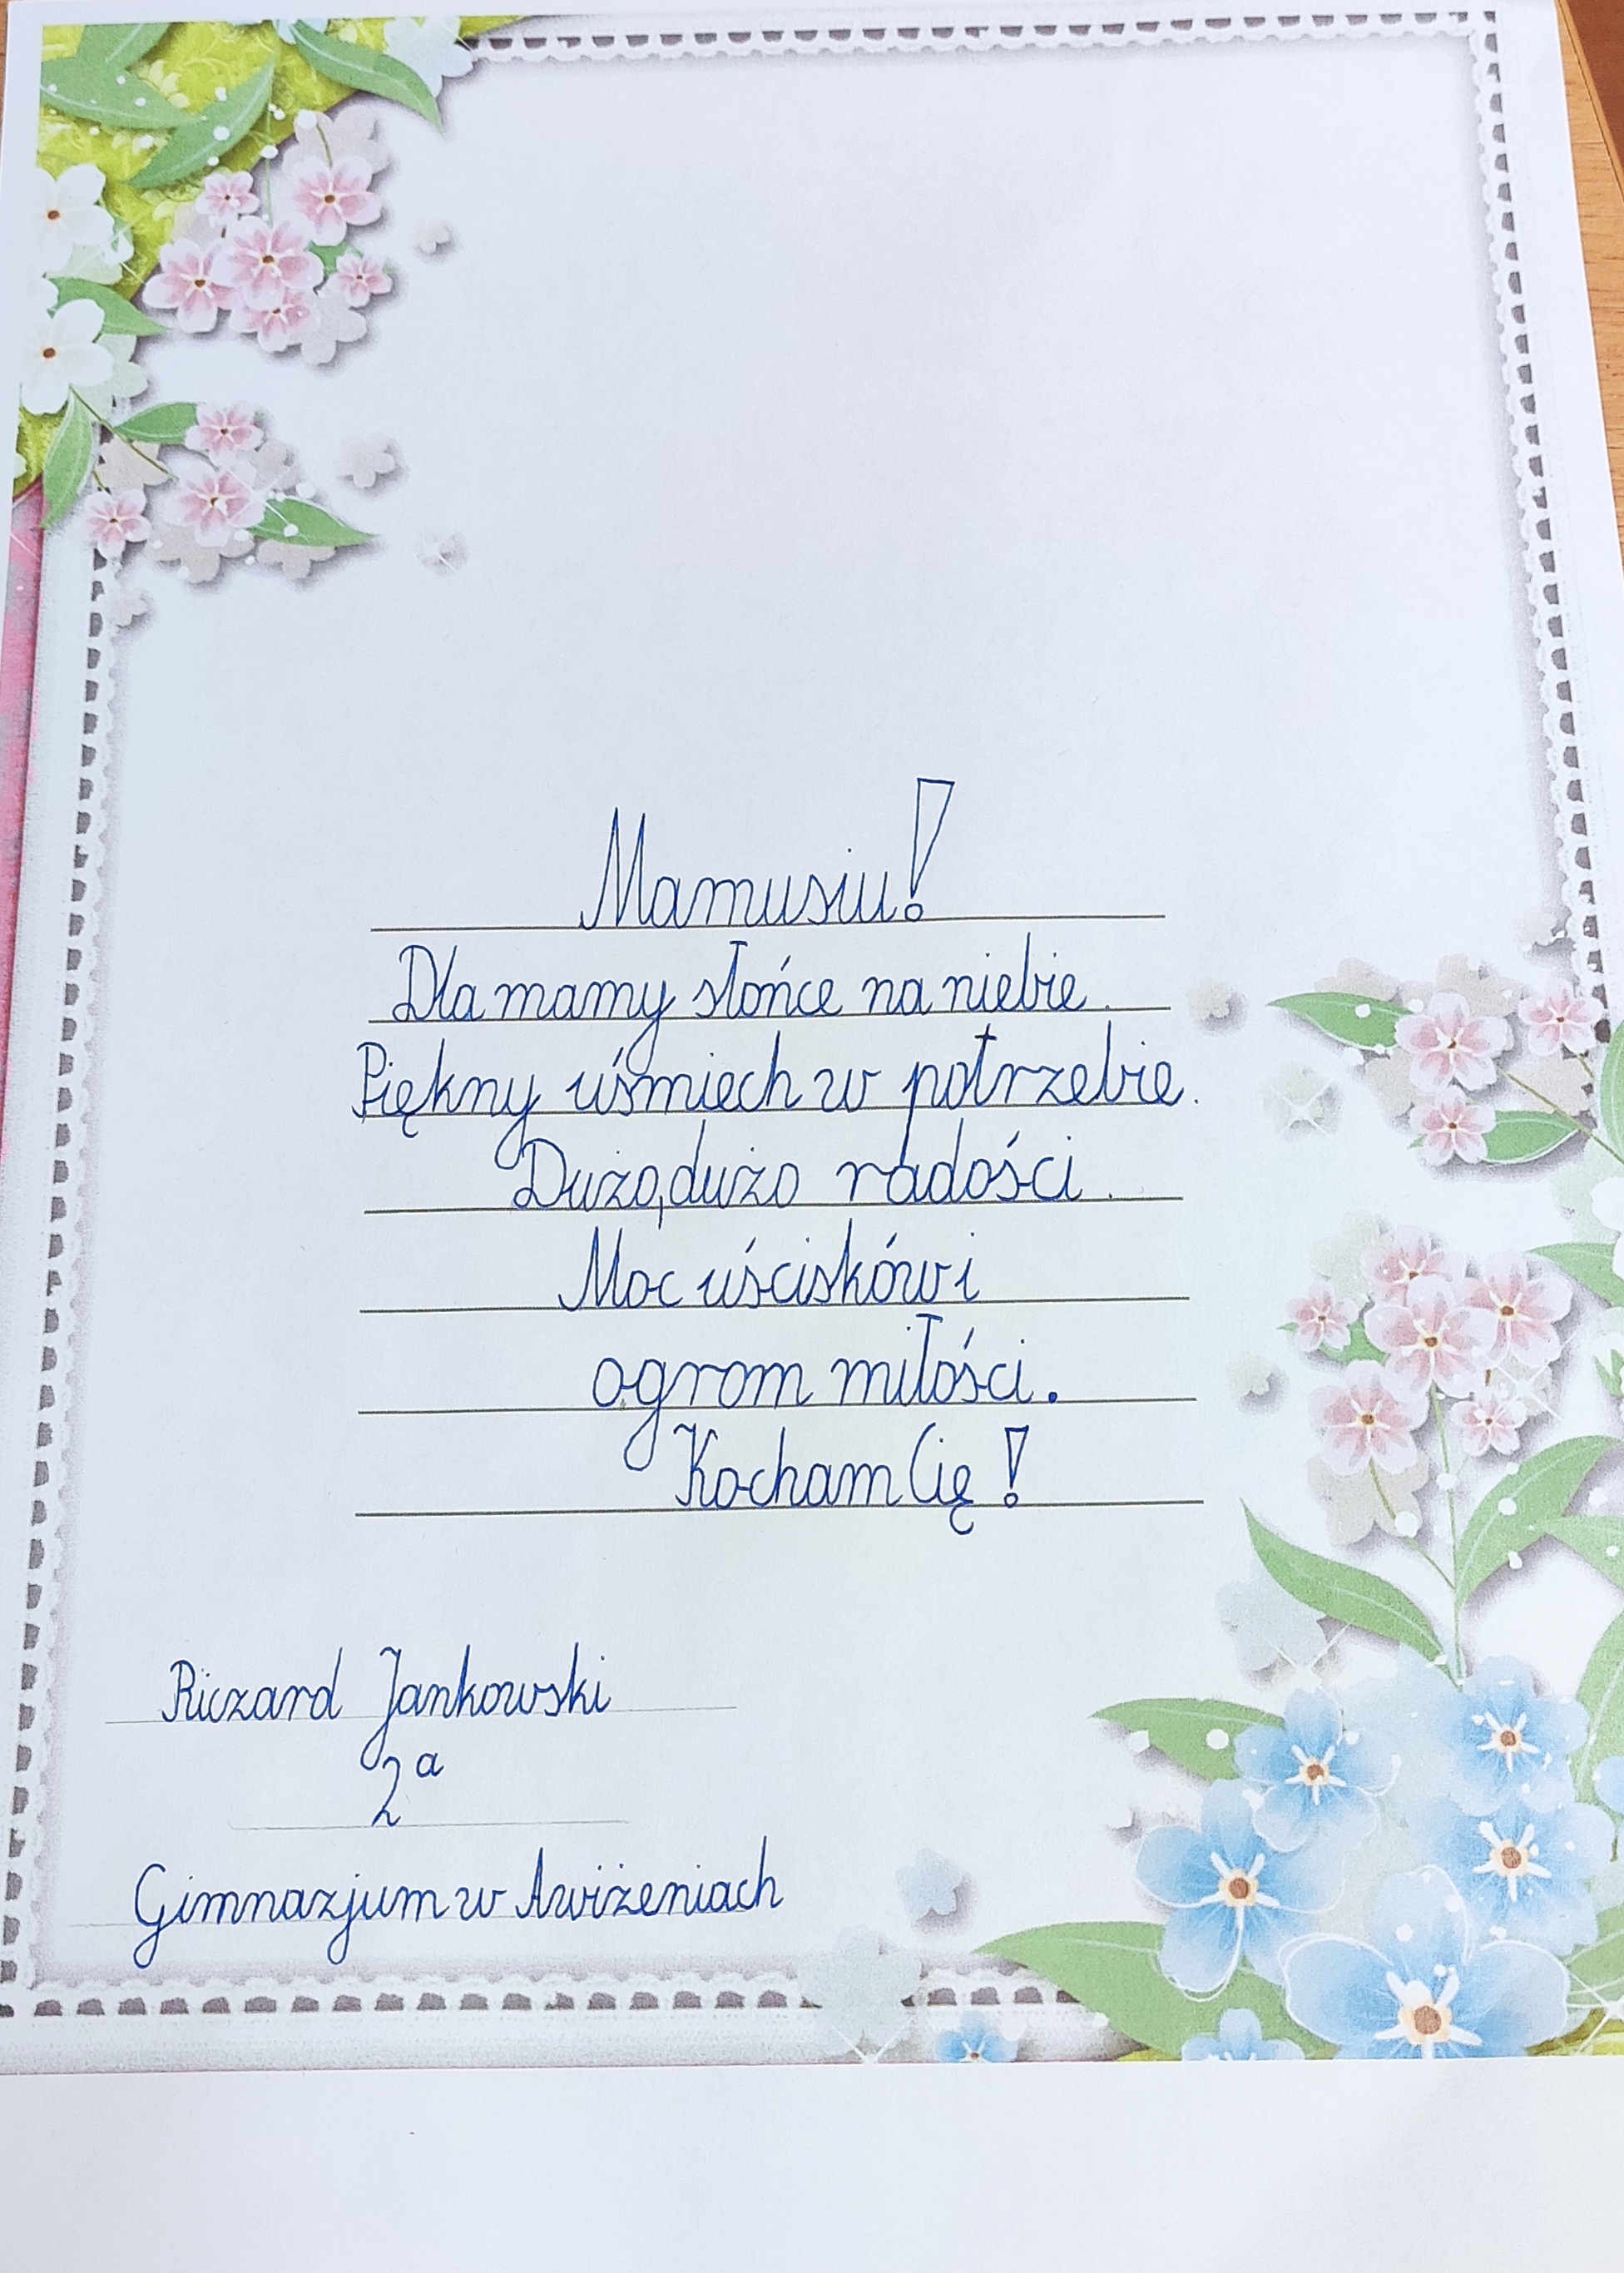 Mamusiu!
Dla mamy słońce na niebie.
Piękny uśmiech w potrzebie.
Dużo, dużo radości.
Moc uścisków i
ogrom miłości.
Kocham Cię!
Riczard Jankowski
2a
Gimnazjum w Awiżeniach